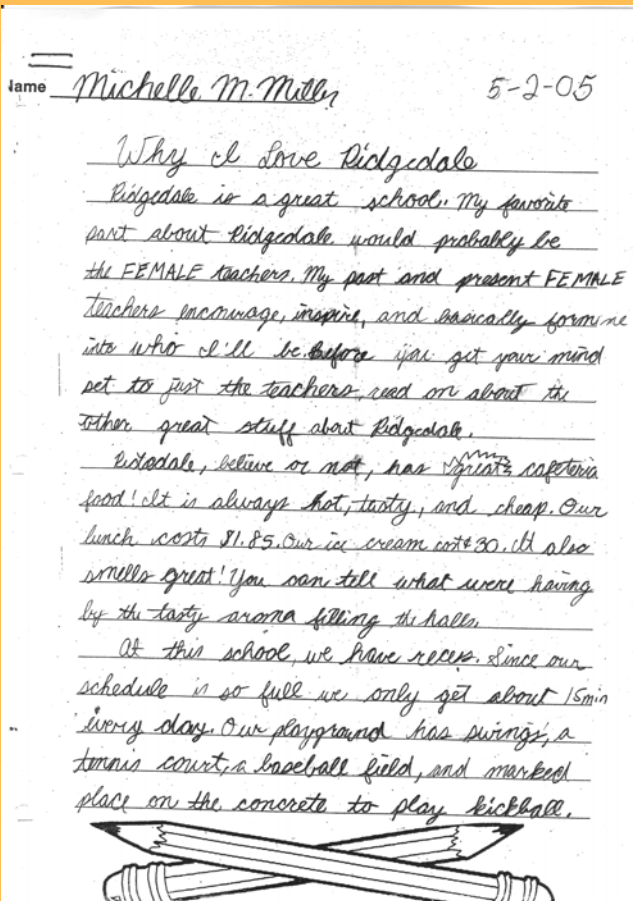 Name Michelle M. Miller 5-2-05
Why I Love Ridgedale
Ridgedale is a great school. My favorite
part about Ridgedale would probably be
the FEMALE teachers. My past and present FEMALE
teachers encourage, inspire, and basically form me
into who I'll be. Before you get your mind
set to just the teachers, read on about the
other great stuff about Ridgedale.
Ridgedale, believe or not, has great cafeteria
food! It is always hot, tasty, and cheap. Our
lunch costs $1.85. Our ice cream cost ¢30. It also
smells great! You can tell what were having
by the tasty aroma filling the halls.
At this school, we have recess. Since our
schedule is so full we only get about 15min
every day. Our playground has swings, a
tennis court, a baseball field, and marked
place on the concrete to play kickball.